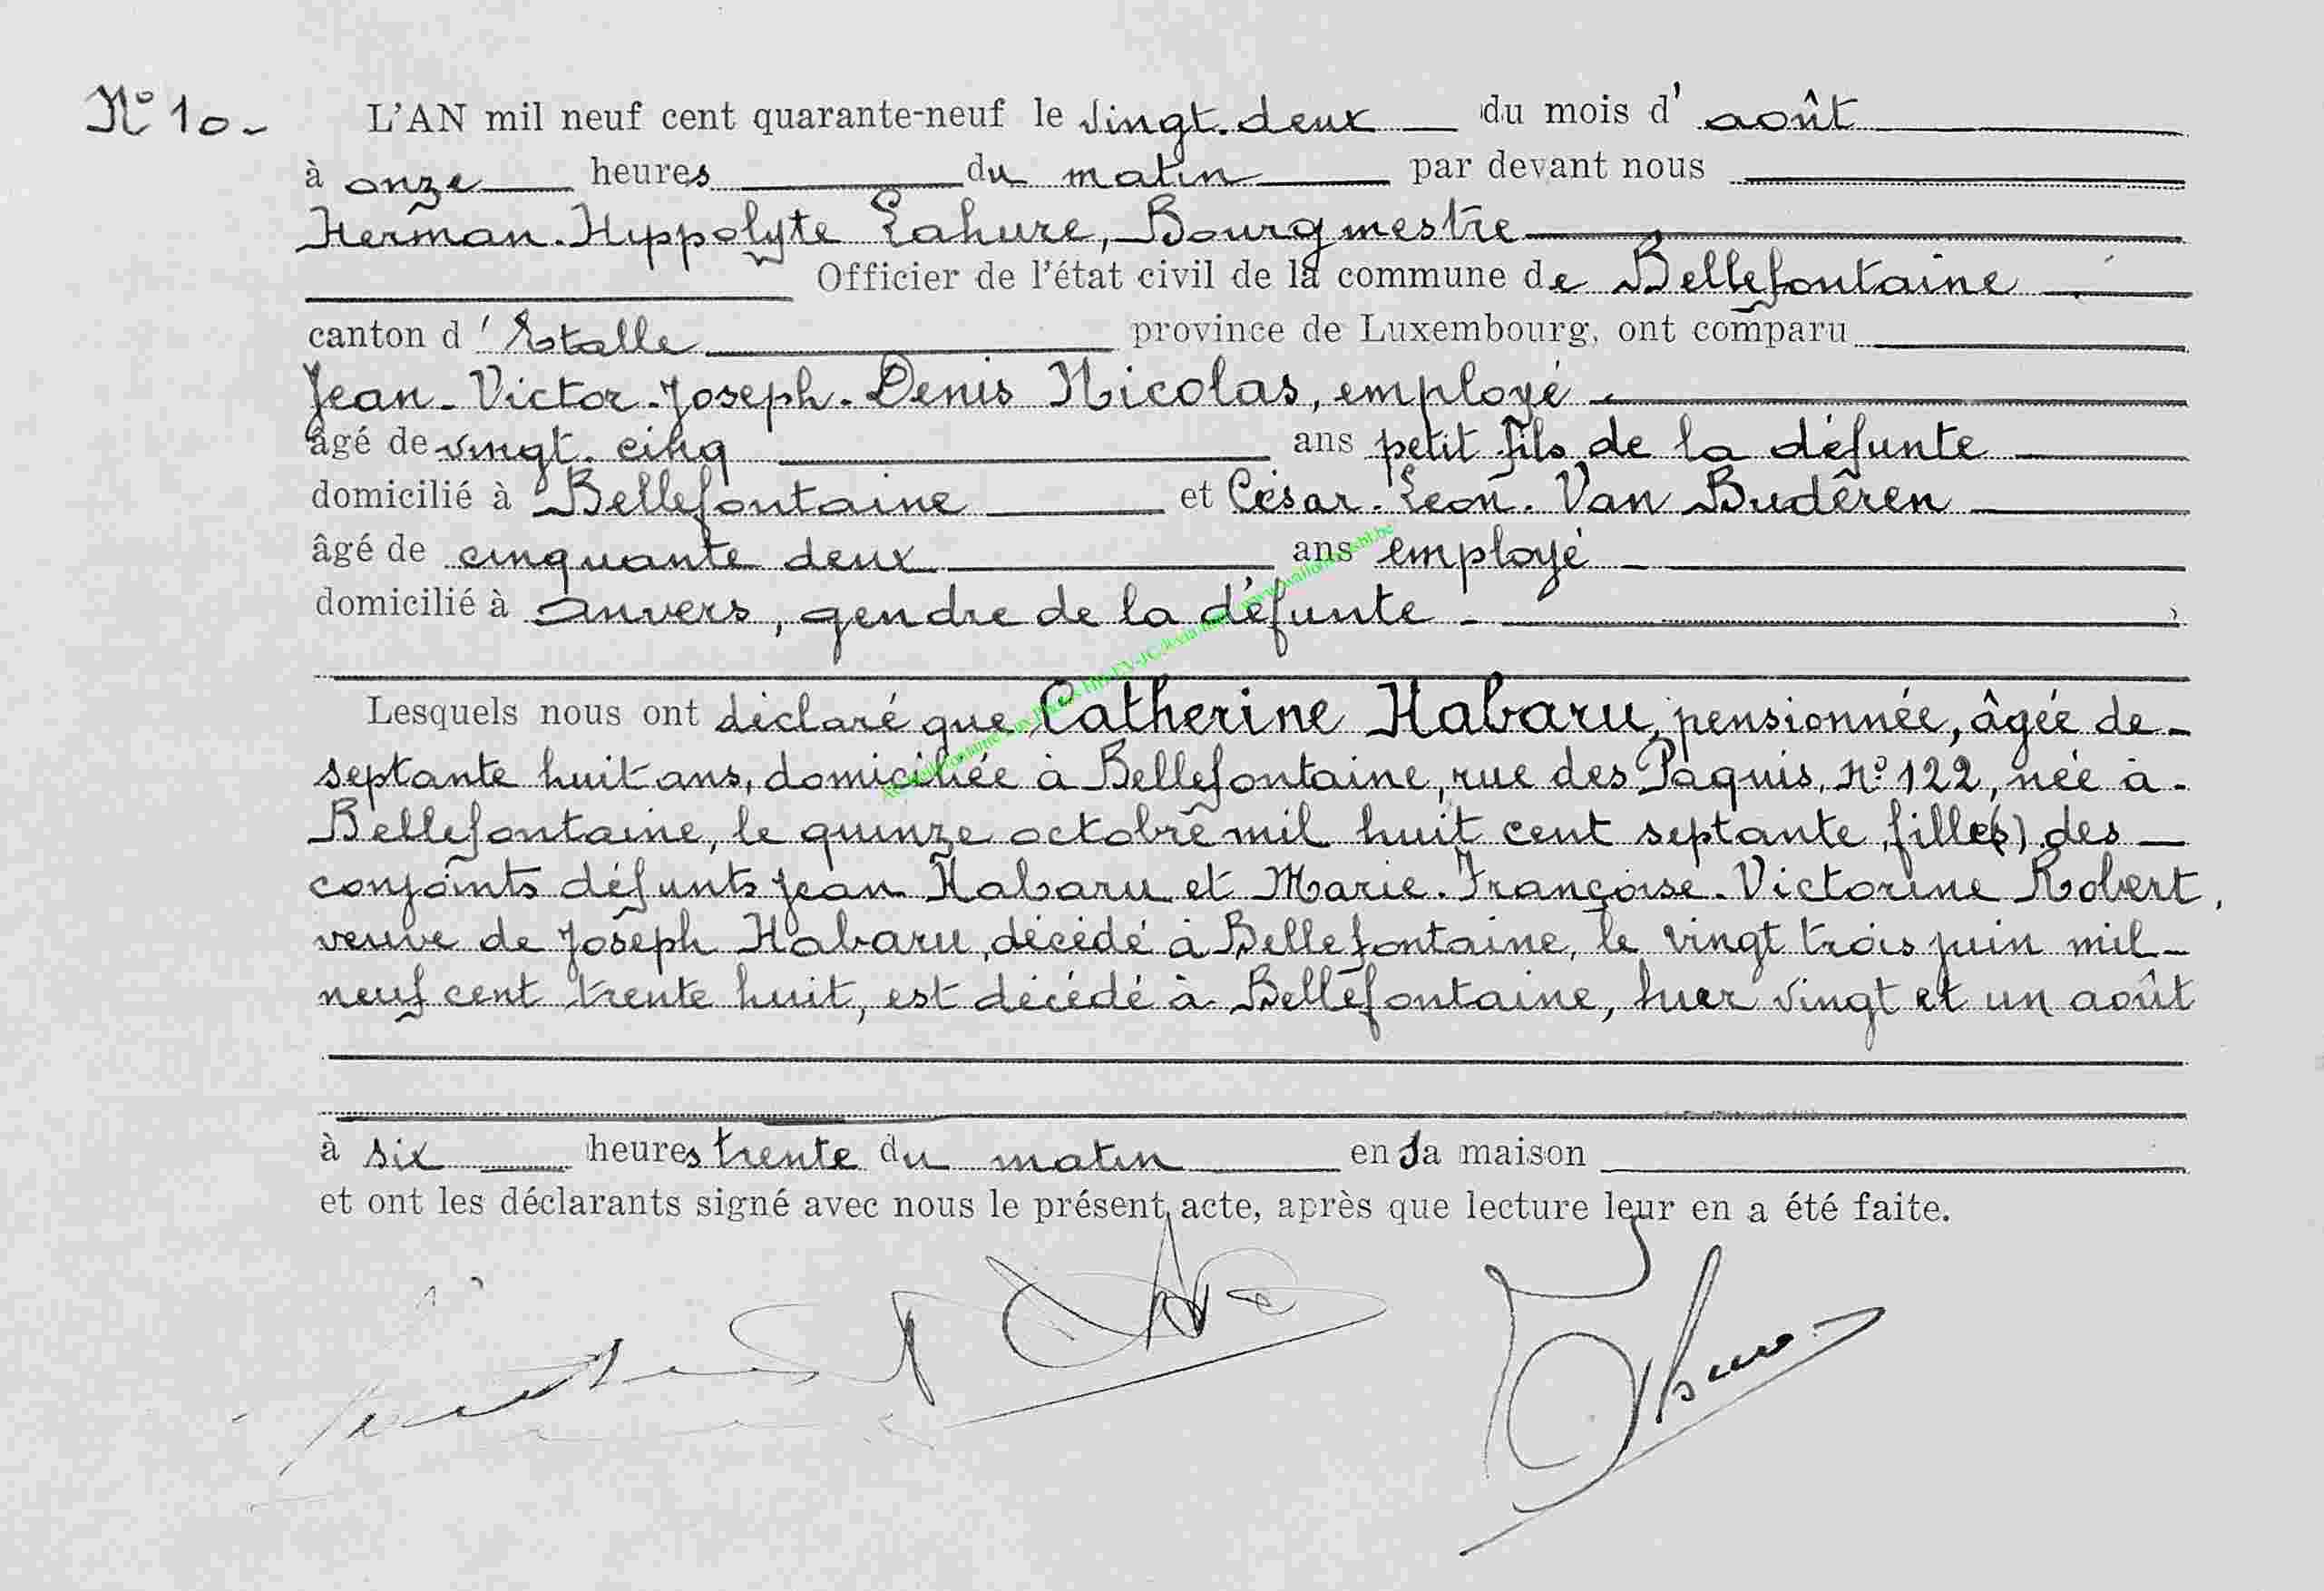 N° 10 -
L'AN mil neuf cent quarante-neuf le vingt-deux du mois d' août
à onze heures du matin par devant nous
Herman-Hyppolyte Lahure, Bourgmestre
Officier de l'état civil de la commune de Bellefontaine
canton d' Etalle province de Luxembourg, ont comparu
Jean-Victor-Joseph-Denis Nicolas, employé
âgé de vingt-cinq ans petit fils de la défunte
domicilié à Bellefontaine et César-Léon-Van Budêren
âgé de cinquante deux ans employé
domicilié à Anvers, gendre de la défunte
Lesquels nous ont déclaré que Catherine Habaru, pensionnée, âgée de
septante huit ans, domiciliée à Bellefontaine, rue des Paquis, N° 122, née à
Bellefontaine, le quinze octobre mil huit cent septante, fille(s) des
conjoints défunts Jean Habaru et Marie-Françoise-Victorine Robert,
veuve de Joseph Habaru, décédé à Bellefontaine, le vingt trois juin mil
neuf cent trente huit, est décédé à Bellefontaine, hier vingt et un août
à six heures trente du matin en sa maison
et ont les déclarants signé avec nous le présent acte, après que lecture leur en a été faite.
Lahure